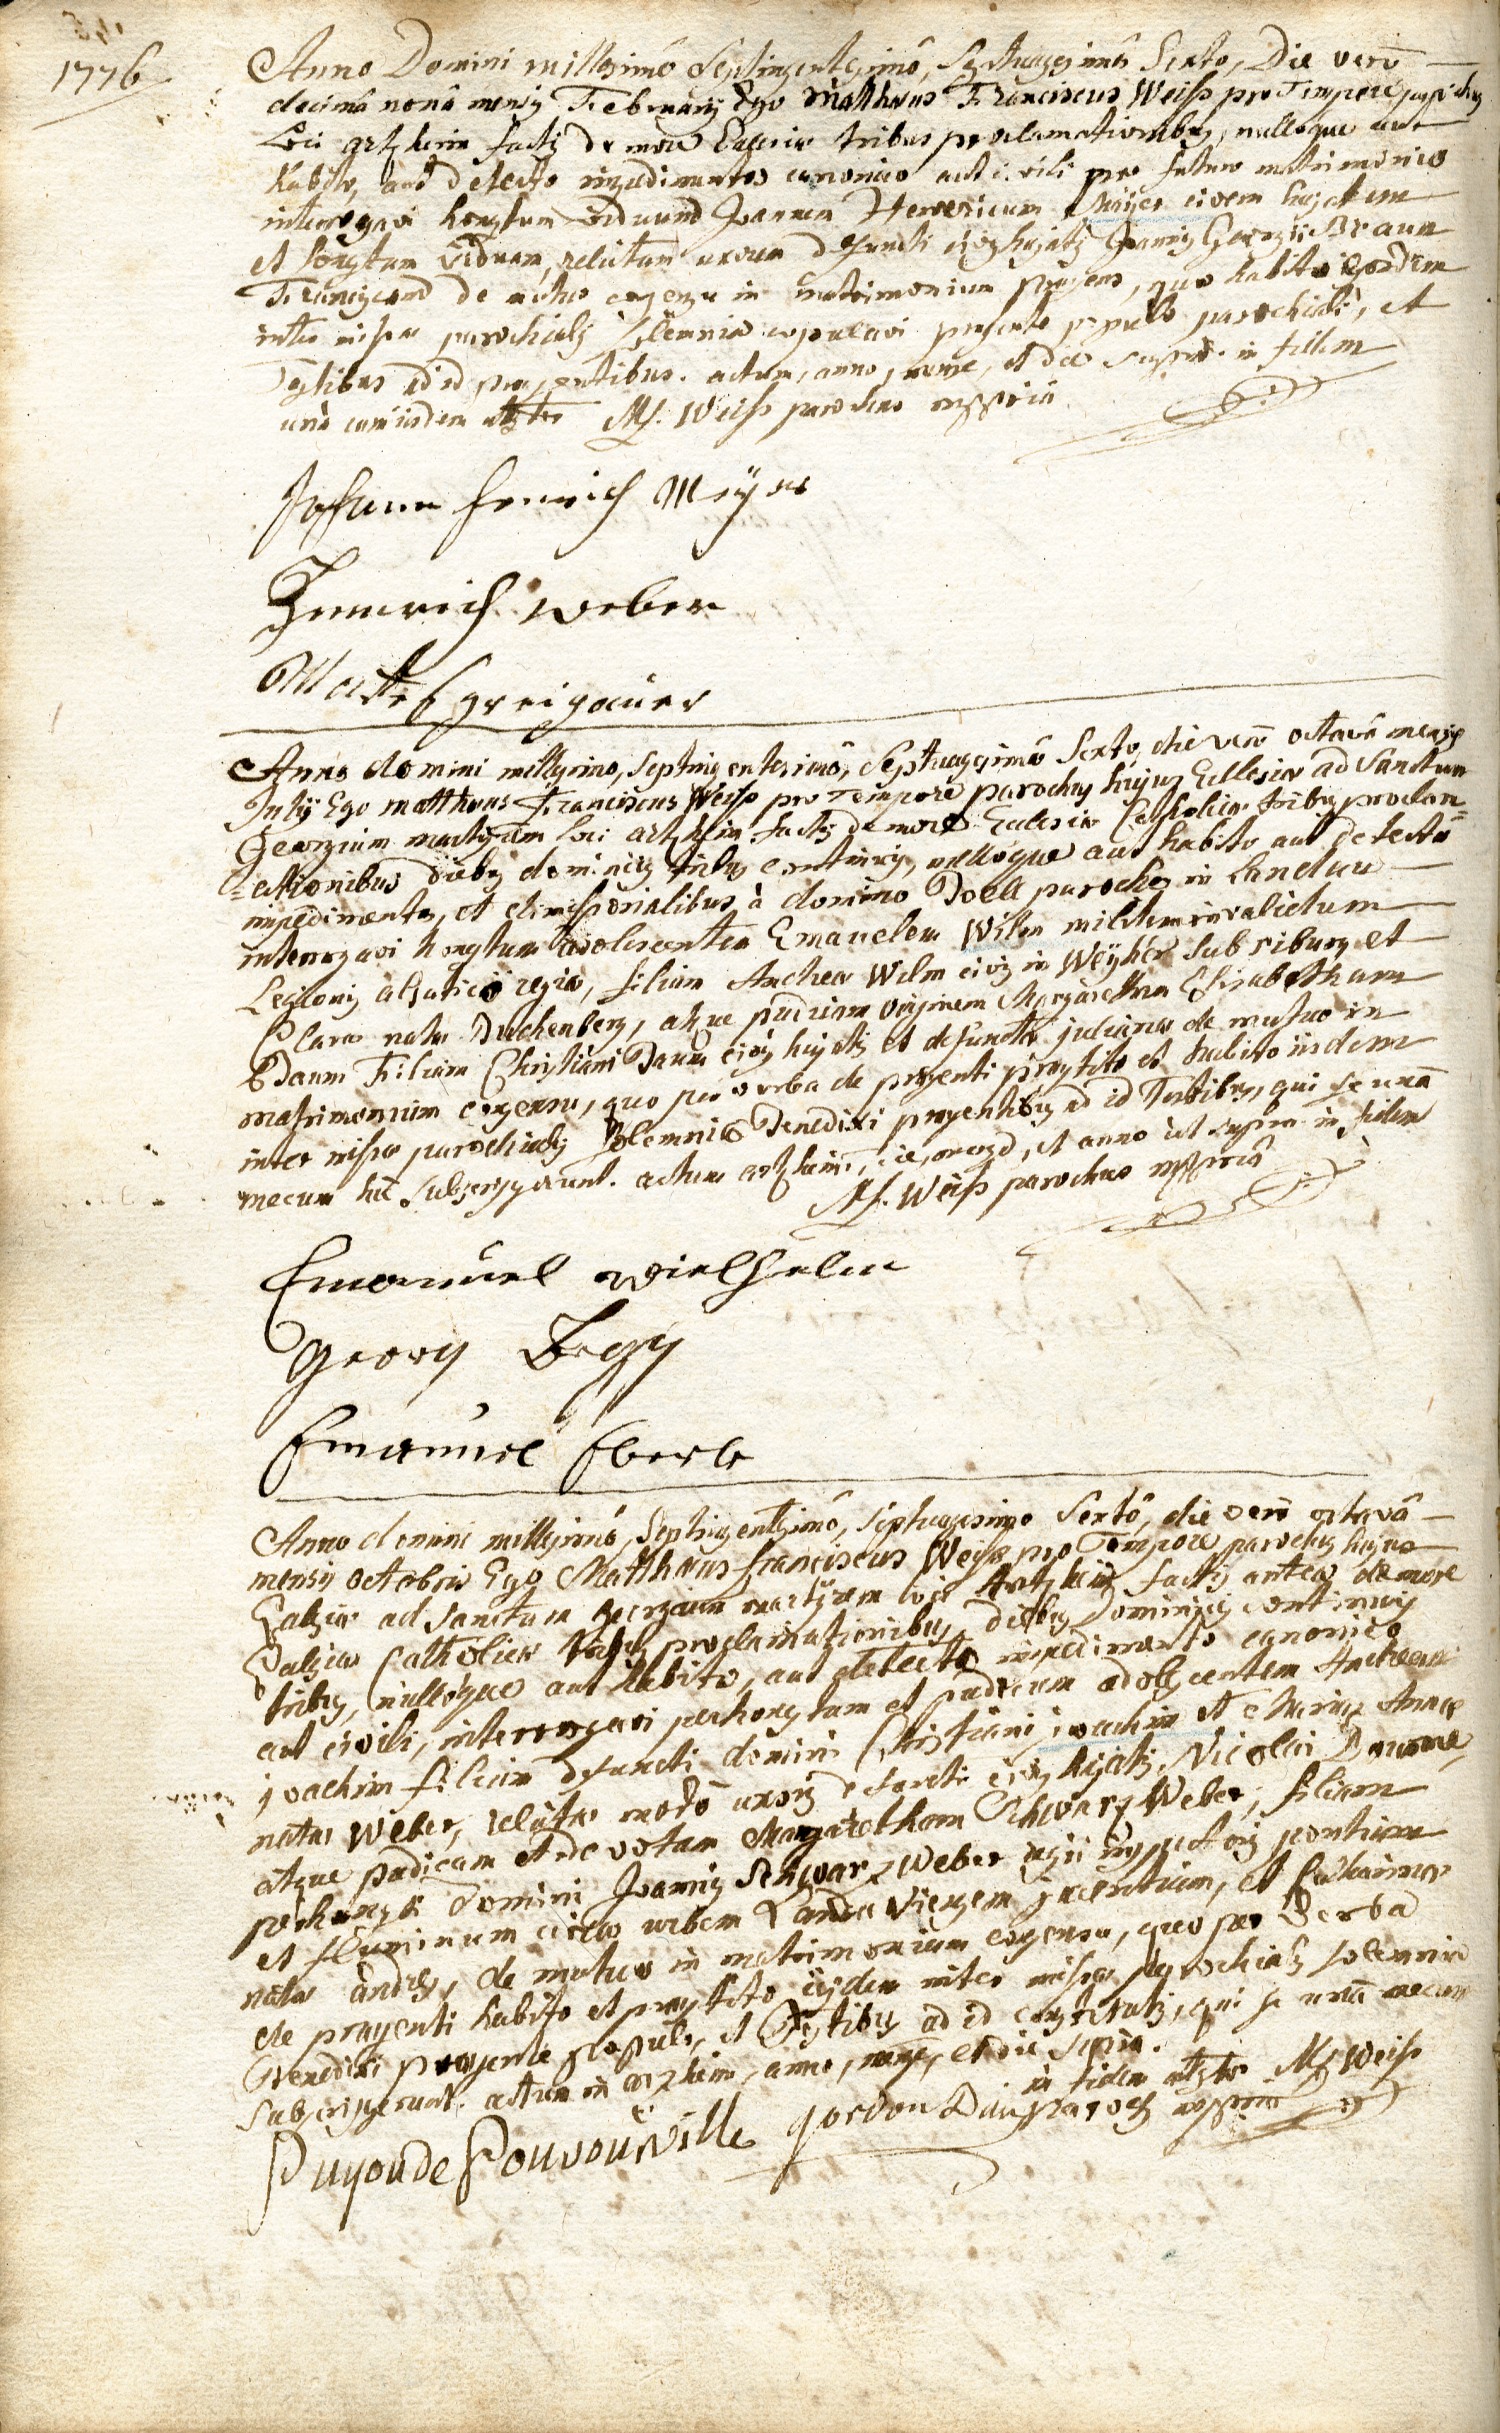 1776
Anno Domini millesimô Septingentesimô, Septuagesimô Sexto, Die verò
decimâ nonâ mensis Februarij Ego Matthæus Franciscus Weiss pro Tempore parochus
Loci artzheim factis de more Ecclesiæ tribus proclamationibus, nulloque aut
habito, aut detecto impedimento canonico aut civili pro futuro matrimonio
interrogavi honestum viduum Joannem Henricum Meÿer civem hujatem
et honestam viduam, relictam uxorem defuncti civis hujatis Joannis Georgii Braun
Franciscam de mutuo consensu in matrimonium, quo habito eosdem
inter missæ parochialis solemnia copulavi præsente populo parochiali, et
Testibus ad id præsentibus. actum, anno, mense, et die supra. in fidem
unà cum iisdem attestor M.f. Weiss parochus mppriâ
Johann Henrich Meÿer
Henrich Weber
Matthes greigauer
Anno domini millesimo, septingentesimô, Septuagesimô Sexto, die verò octavâ mensis
Julÿ Ego matthæus Franciscus Weiss pro Tempore parochus hujus Ecclesiæ ad Sanctum
Georgium martyrem loci artzheim factis de more Ecclesiæ Catholicæ tribus proclam=
=ationibus diebus dominicis tribus continuis, nulloque aut habito aut detecto
impedimento, et dimissorialibus à domino Doell parocho in Landau
interrogavi honestum adolescentem Emanuelem Wilm militem invalidum
Legionis alsaticæ regiæ, filium Andreæ Wilm civis in Weÿher sub riburg et
Claræ natæ Duchenberg, atque pudicam virginem Margaretham Elisabetham
Daum Filiam Christiani Daum civis hujatis et defunctæ julianæ de mutuo in
matrimonium consensu, quo per verba de præsenti præstito et habito iisdem
inter missæ parochialis solemnia Benedixi præsentibus ad id Testibus, qui se unà
mecum hic subscripserunt. actum artzheim, die, mense, et anno ut supra in fidem
M.f. Weiss parochus mppriâ
Emanuel Wielhelm
Georg
Emanuel Eberle
Anno domini millesimô, Septingentesimô, Septuagesimo Sextô, die verò octavâ
mensis octobris Ego Matthæus franciscus Weiss pro Tempore parochus hujus
Ecclesiæ ad sanctum georgium martÿrem loci Artzheim factis antea de more
Ecclesiæ Catholicæ tribus proclamationibus, diebus Dominicis continuis
tribus, nulloque aut habito, aut detecto impedimento canonico
aut civili, interrogavi perhonestum et pudicum adolescentem Andream
joachim filium defuncti domini Christiani joachim et Mariæ Annæ
natæ Weber, relictæ modò uxoris defuncti civis hujatis, Nicolai
atque pudicam et devotam Margaretham Schwarz Weber, filiam
perhonesti Domini Joannis Schwarz Weber regii inspectoris pontium
et fluminum circa urbem Landaviensem jacentium, et Catharinæ
natæ, de mutuo in matrimonium consensu, quo per Verba
de præsenti habito et præstito iisdem inter missæ parochialis solemnia
Benedixi præsente populo, et Testibus ad id, qui se unà mecum
subscripserunt. actum in arzheim, anno, mense, et die supra.
in fidem attestor M.f. Weiss
paroch mppriâ
Puyou de Pouvourville gordon